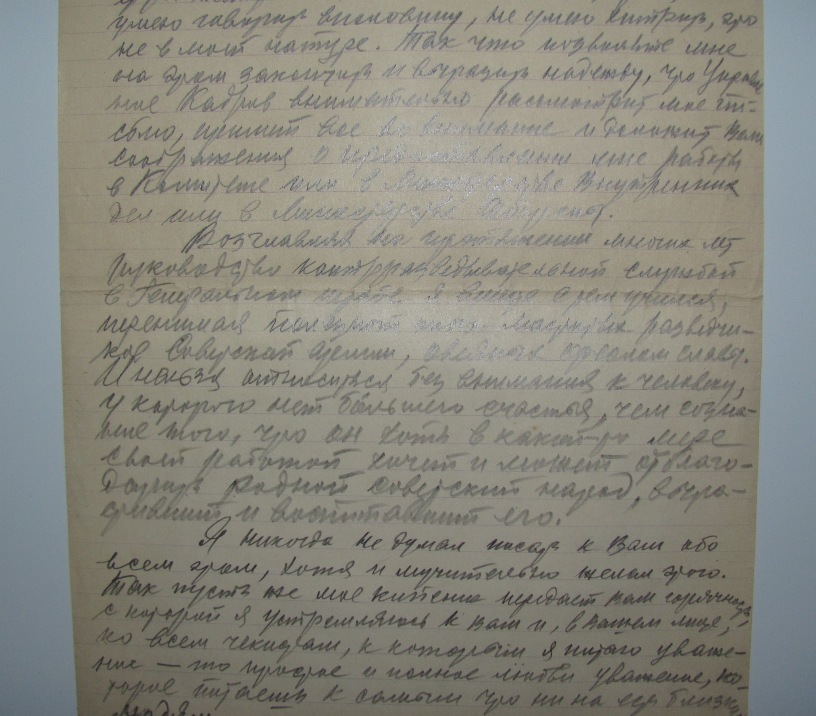 умею говорить вполовину, не умею хитрить, это
не в моей натуре. Так что позвольте мне
на этом закончить и выразить надежду, что Управле-
ние Кадров внимательно рассмотрит мое пи-
сьмо, примет все во внимание и доложит Вам
соображения о предоставлении мне работы
в Комитете или в Министерстве Внутренних
дел или в Министерстве
Возглавляя на протяжении многих лет
руководство контрразведывательной службой
в Генеральном штабе я
перенимая разведчи-
ков Советской Армии, славы.
И нельзя относиться без внимания к человеку,
у которого нет большего счастья, чем созна-
ние того, что он хоть в какой-то мере
своей работой хочет и может отблаго-
дарить родной советский народ, выра-
стивший и воспитавший его.
Я никогда не думал писать к Вам обо
всем этом, хотя и мучительно желал этого.
Так пусть же мое передаст Вам горячность,
с которой я устремляюсь к Вам и, в Вашем лице,
ко всем чекистам, к которым я питаю уваже-
ние — то простое и полное любви уважение, ко-
торое питаешь к самым что ни на есть близким
людям